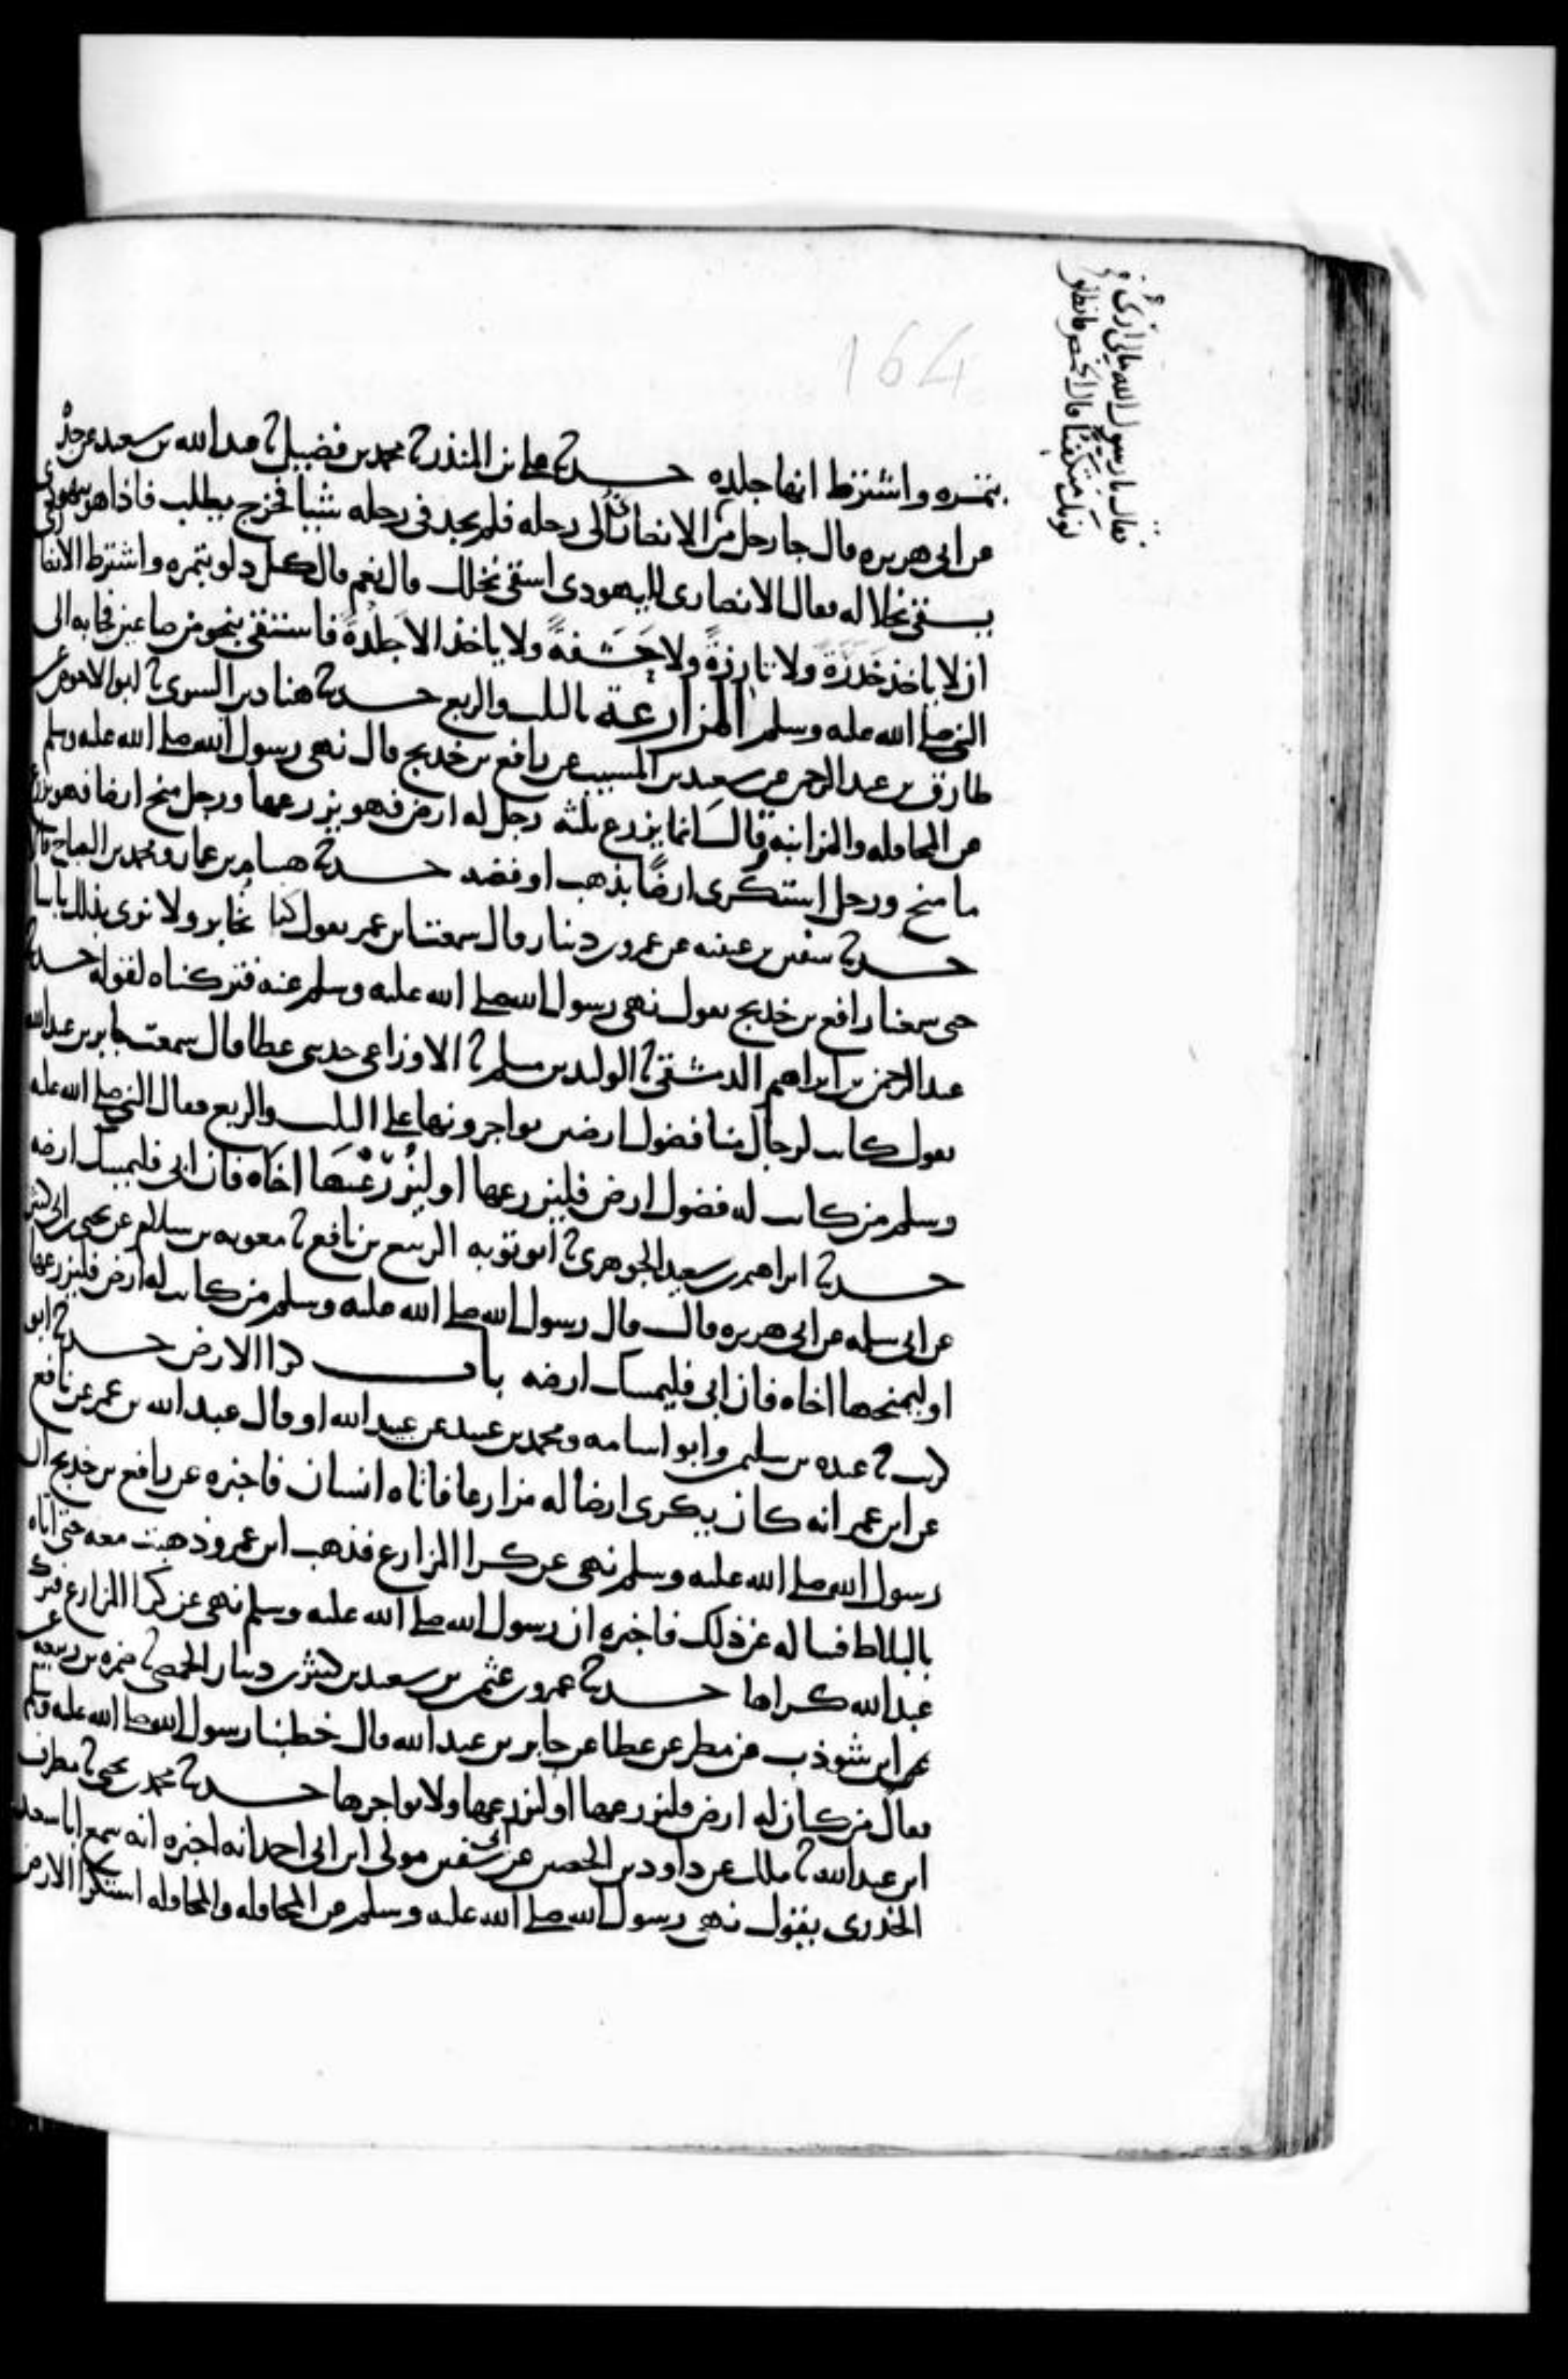 فقال يا رسول الله مالي ارى
لونك منكفئا قال الخمص فانطلق
164
بتمره واشترط انها جلده حدثنا علي بن المنذر ثنا محمد بن فضيل ثنا عبد الله بن سعيد عن جده
عن ابي هريره قال جا رجل من الانصار الى رحله فلم يجد في رحله شيئا فخرج يطلب فاذا هو بيهودي
يسقي نخلا له فقال الانصاري لليهودي اسقي نخلك قال نعم قال كل دلو بتمره واشترط الانصاري
ان لا ياخذ خَدِرَةً ولا تارزةً ولا حَشَفةً ولا ياخذ الا جَلْدةً فاستقى بنحو من صاعين فجا به الى
النبي صلى الله عليه وسلم المزارعة بالثلث والربع حدثنا هناد بن السري ثنا ابو الاحوص عن
طارق بن عبد الرحمن عن سعيد بن المسيب عن رافع بن خديج قال نهى رسول الله صلى الله عليه وسلم
عن المحاقله والمزابنه وقال انما يزرع ثلثه رجل له ارض فهو يزرعها ورجل منح ارضا فهو يزرع
ما منح ورجل استكرى ارضًا بذهب او فضه حدثنا هشام بن عمار ومحمد بن الصباح قالا
حدثنا سفين بن عيينه عن عمرو بن دينار قال سمعت ابن عمر يقول كنا نُخابر ولا نرى بذلك باسا
حتى سمعنا رافع بن خديج يقول نهى رسول الله صلى الله عليه وسلم عنه فتركناه لقوله حدثنا
عبد الرحمن بن ابراهيم الدمشقي ثنا الوليد بن مسلم ثنا الاوزاعي حدثني عطا قال سمعت جابر بن عبد الله
يقول كانت لرجال منا فضول ارضين يواجرونها على الثلث والربع فقال النبي صلى الله عليه
وسلم من كانت له فضول ارض فليزرعها او ليُزْرِعْها اخَاه فان ابى فليمسك ارضه
حدثنا ابراهيم بن سعيد الجوهري ثنا ابو توبه الربيع بن نافع ثنا معويه بن سلام عن يحيى بن ابي كثير
عن ابي سلمه عن ابي هريره قال قال رسول الله صلى الله عليه وسلم من كانت له ارض فليزرعها
او ليمنحها اخاه فان ابى فليمسك ارضه باب كرا الارض حدثنا ابو
كريب ثنا عبده بن سليمن وابو اسامه ومحمد بن عبيد عن عبيد الله او قال عبد الله بن عمر عن نافع
عن ابن عمر انه كان يكري ارضا له مزارعا فاتاه انسان فاخبره عن رافع بن خديج ان
رسول الله صلى الله عليه وسلم نهى عن كرا المزارع فذهب ابن عمر وذهبت معه حتى اتاه
بالبلاط فساله عن ذلك فاخبره ان رسول الله صلى الله عليه وسلم نهى عن كرا المزارع فترك
عبد الله كراها حدثنا عمرو بن عثمن بن سعيد بن كثير بن دينار الحمصي ثنا ضمره بن ربيعه
عن ابن شوذب عن مطر عن عطا عن جابر بن عبد الله قال خطبنا رسول الله صلى الله عليه وسلم
فقال من كان له ارض فليزرعها او ليزرعها ولا يواجرها حدثنا محمد بن يحيى ثنا مطرف
ابن عبد الله ثنا ملك عن داود بن الحصين عن ابي سفين مولى ابن ابي احمد انه اخبره انه سمع ابا سعيد
الخدري يقول نهى رسول الله صلى الله عليه وسلم عن المحاقله والمحاقله استكرا الارض